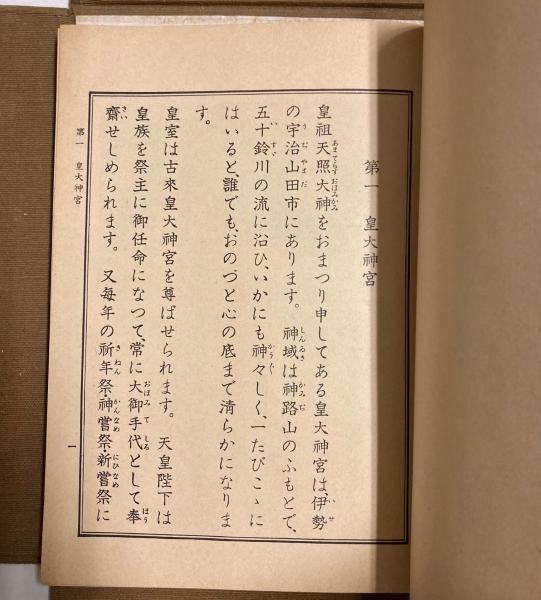 第一　皇大神宮
皇祖天照大神をおまつり申してある皇大神宮は、伊勢
の宇治山田市にあります。神域は神路山のふもとで、
五十鈴川の流に沿ひ、いかにも神々しく、一たびこゝに
はいると、誰でも、おのづと心の底まで清らかになりま
す。
皇室は古來皇大神宮を尊ばせられます。天皇陛下は
皇族を祭主に御任命になつて、常に大御手代として奉
齋せしめられます。又每年の祈年祭・神嘗祭・新嘗祭に
第一　皇大神宮
一